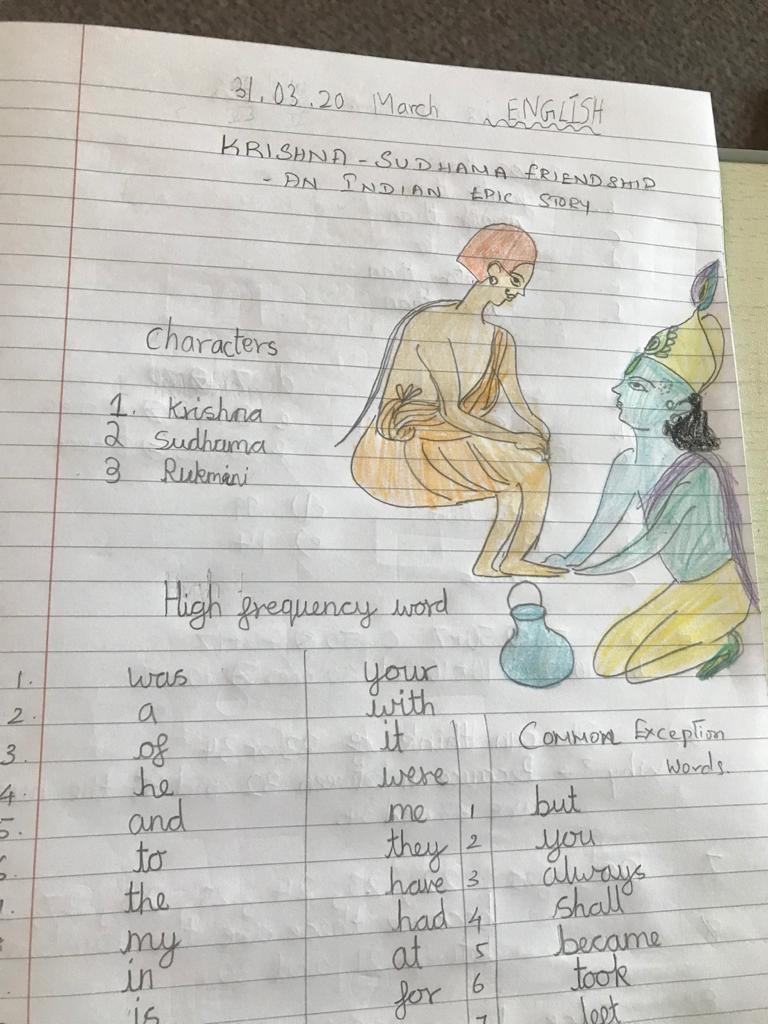 31.03.20 March ENGLISH
KRISHNA - SUDHAMA FRIENDSHIP
- AN INDIAN EPIC STORY
Characters
1. Krishna
2 Sudhama
3 Rukmini
High frequency word
1. was your
2. a with
3. of it
4. he were
5. and me
to they
the have
my had
in at
is for
Common Exception
words.
1 but
2 you
3 always
4 shall
5 became
6 took
7 left